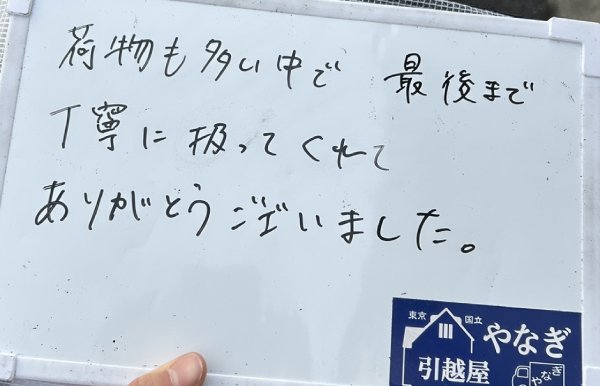 荷物も多い中で 最後まで
丁寧に扱ってくれて
ありがとうございました。
東京 国立
やなぎ
引越屋
やなぎ